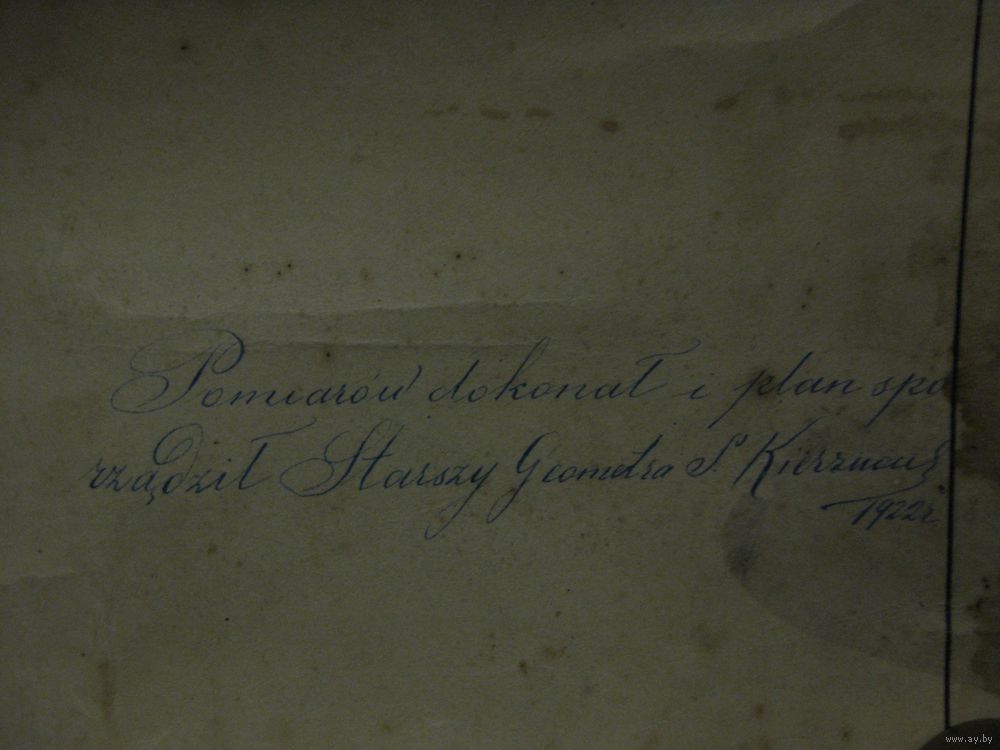 Pomiarów dokonał i plan spo
rządził Starszy Geometra S.
1922 r.
www.ay.by